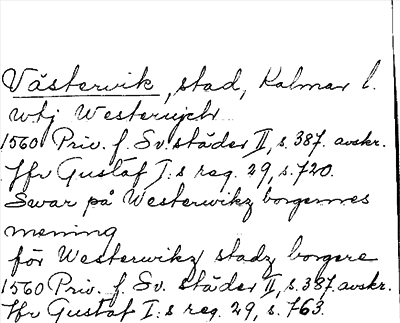 Västervik, stad, Kalmar l.
wtj Westerwich
1560 Priv. f. Sv. städer II, s. 387. avskr.
Jfr Gustaf I:s reg. 29, s. 720.
Swar på Westerwikz borgernes
mening
för Westerwikz stadz borgere
1560 Priv. f. Sv. städer II, s. 387. avskr.
Jfr Gustaf I:s reg. 29, s. 763.